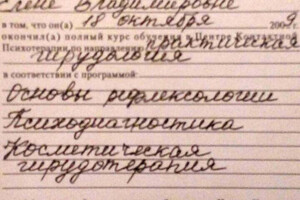 Елене Владимировне
в том, что он(а) 18 октября 2009
окончил(а) полный курс обучения в Центре Контактной
Психотерапии по направлению практическая
гирудология
в соответствии с программой:
Основы рефлексологии
Психодиагностика
Косметическая
гирудотерапия